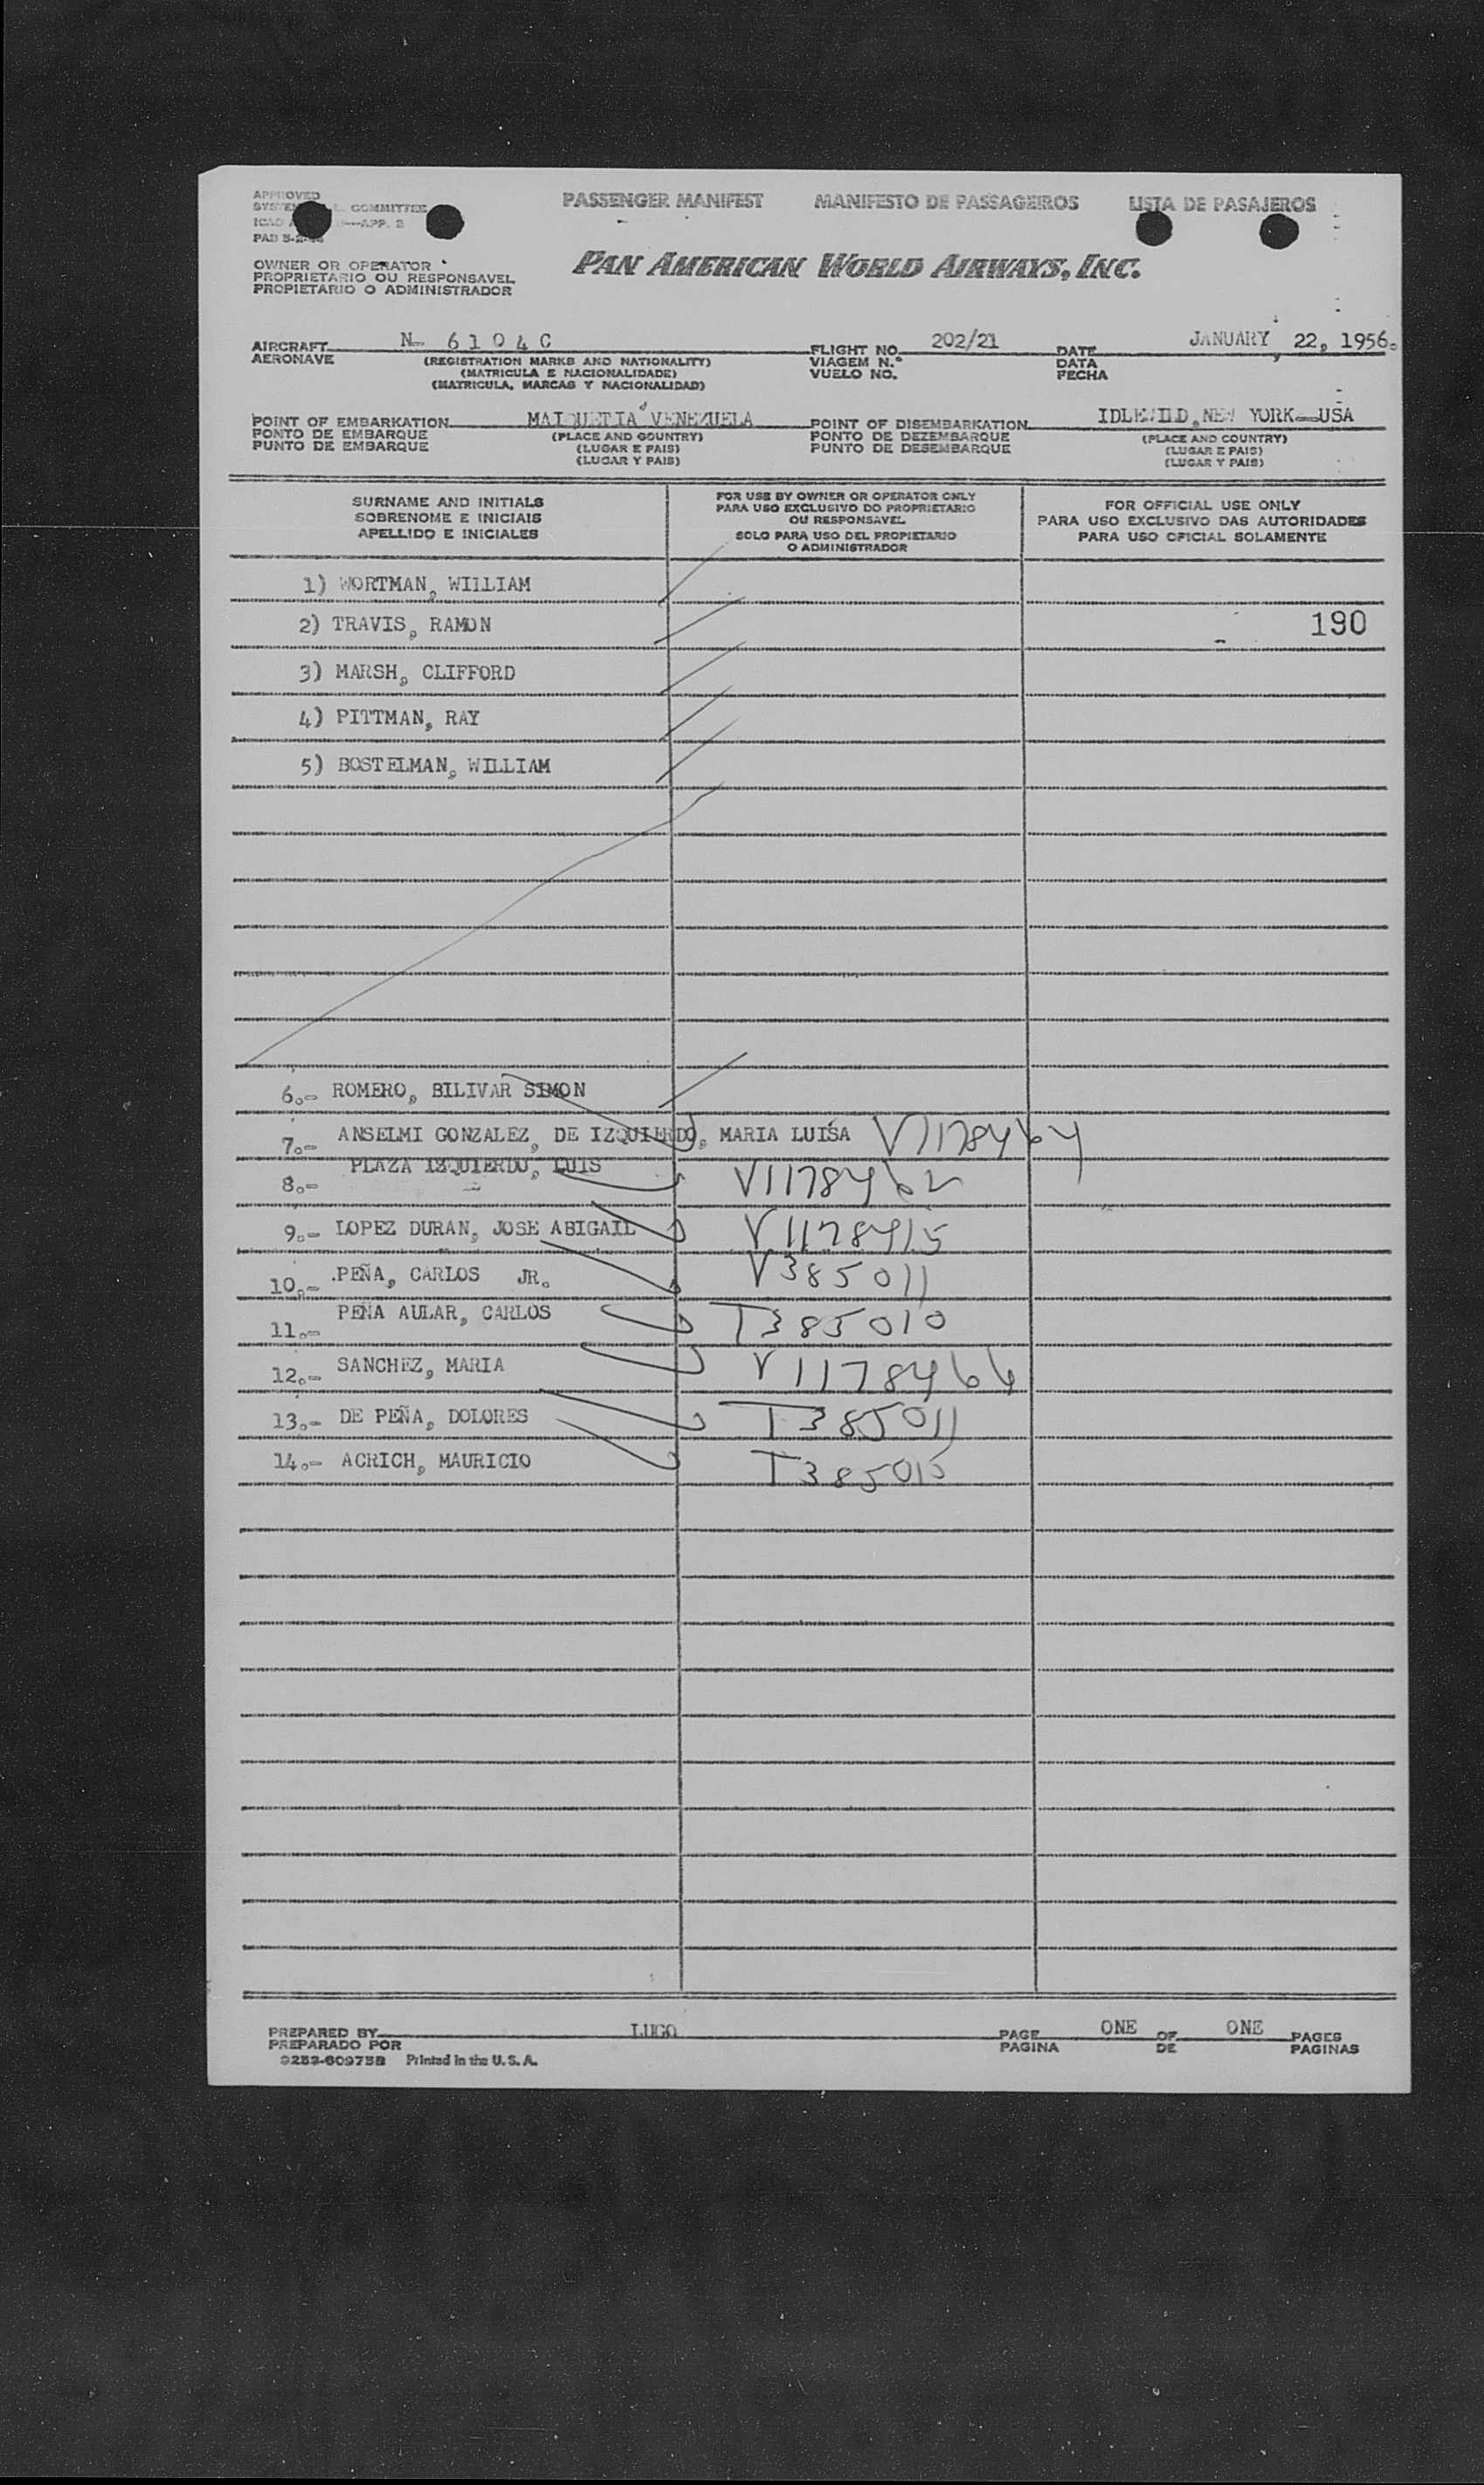 APPROVED PASSENGER MANIFEST MANIFESTO DE PASSAGEIROS LISTA DE PASAJEROS
COMMITTEE
APP. 2
OWNER OR OPERATOR
PROPRIETARIO OU RESPONSAVEL
PROPIETARIO O ADMINISTRADOR
PAN AMERICAN WORLD AIRWAYS, INC.
AIRCRAFT N- 6104C FLIGHT NO. 202/21 DATE JANUARY 22, 1956.
AERONAVE (REGISTRATION MARKS AND NATIONALITY) VIAGEM N.° DATA
(MATRICULA E NACIONALIDADE) VUELO NO. FECHA
(MATRICULA, MARCAS Y NACIONALIDAD)
POINT OF EMBARKATION MAIQUETIA VENEZUELA POINT OF DISEMBARKATION IDLEWILD, NEW YORK-USA
PONTO DE EMBARQUE (PLACE AND COUNTRY) PONTO DE DEZEMBARQUE (PLACE AND COUNTRY)
PUNTO DE EMBARQUE (LUGAR E PAIS) PUNTO DE DESEMBARQUE (LUGAR E PAIS)
(LUGAR Y PAIS) (LUGAR Y PAIS)
SURNAME AND INITIALS
SOBRENOME E INICIAIS
APELLIDO E INICIALES
FOR USE BY OWNER OR OPERATOR ONLY
PARA USO EXCLUSIVO DO PROPRIETARIO
OU RESPONSAVEL
SOLO PARA USO DEL PROPIETARIO
O ADMINISTRADOR
FOR OFFICIAL USE ONLY
PARA USO EXCLUSIVO DAS AUTORIDADES
PARA USO OFICIAL SOLAMENTE
1) WORTMAN, WILLIAM
2) TRAVIS, RAMON 190
3) MARSH, CLIFFORD
4) PITTMAN, RAY
5) BOSTELMAN, WILLIAM
6.- ROMERO, BILIVAR SIMON
7.- ANSELMI GONZALEZ, DE IZQUIERDO, MARIA LUISA V1178464
8.- PLAZA IZQUIERDO, LUIS V1178462
9.- LOPEZ DURAN, JOSE ABIGAIL V1178415
10.- PEÑA, CARLOS JR. V385011
11.- PEÑA AULAR, CARLOS T385010
12.- SANCHEZ, MARIA V1178466
13.- DE PEÑA, DOLORES T385011
14.- ACRICH, MAURICIO T385015
PREPARED BY LUGO PAGE ONE OF ONE PAGES
PREPARADO POR PAGINA DE PAGINAS
9253-60975B Printed in the U. S. A.